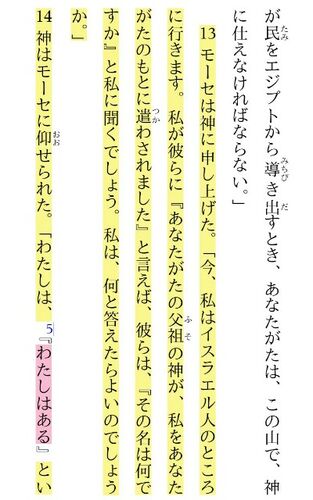 が民をエジプトから導き出すとき、あなたがたは、この山で、神
に仕えなければならない。」
13 モーセは神に申し上げた。「今、私はイスラエル人のところ
に行きます。私が彼らに『あなたがたの父祖の神が、私をあなた
がたのもとに遣わされました』と言えば、彼らは、『その名は何で
すか』と私に聞くでしょう。私は、何と答えたらよいのでしょう
か。」
14 神はモーセに仰せられた。「わたしは、5『わたしはある』とい